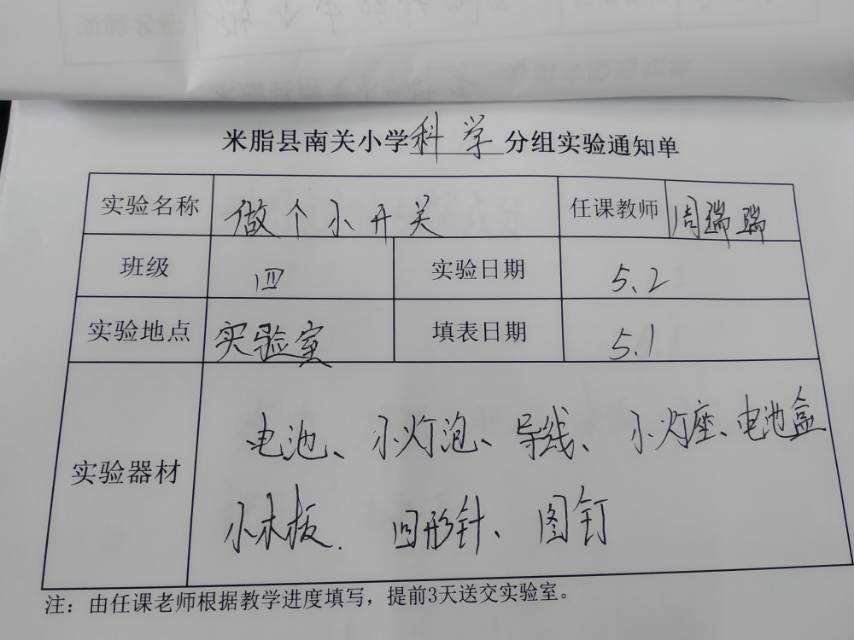 米脂县南关小学科学分组实验通知单
实验名称 做个小开关 任课教师 周瑞瑞
班级 四 实验日期 5.2
实验地点 实验室 填表日期 5.1
电池、小灯泡、导线、小灯座、电池盒
实验器材
小木板. 回形针、图钉
注：由任课老师根据教学进度填写，提前3天送交实验室。